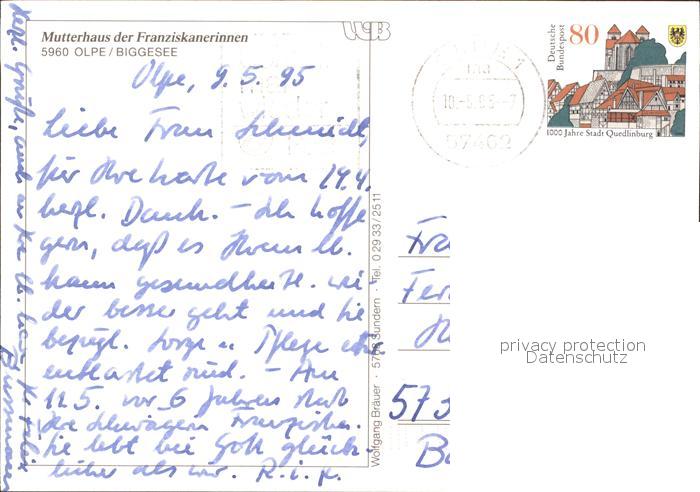 Mutterhaus der Franziskanerinnen
5960 OLPE / BIGGESEE
Olpe, 9.5.95
Liebe Frau Schmidt,
für Ihre Karte vom 29.4.
herzl. Dank. – Ich hoffe
gern, daß es Ihrem lb.
Mann gesundheitl. wie-
der besser geht und Sie
bezügl. Sorge u. Pflege etw.
entlastet sind. – Am
11.5. vor 6 Jahren starb
Ihre Schwägerin
Sie lebt bei Gott glück-
licher als wir. R.i.p.
Herzl. Grüße, auch an Ihre lb.
Wolfgang Bräuer · Sundern · Tel. 0 29 33 / 25 11
10.-5.95-7
57462
Deutsche
Bundespost
80
1000 Jahre Stadt Quedlinburg
Fra
Fer
573
privacy protection
Datenschutz